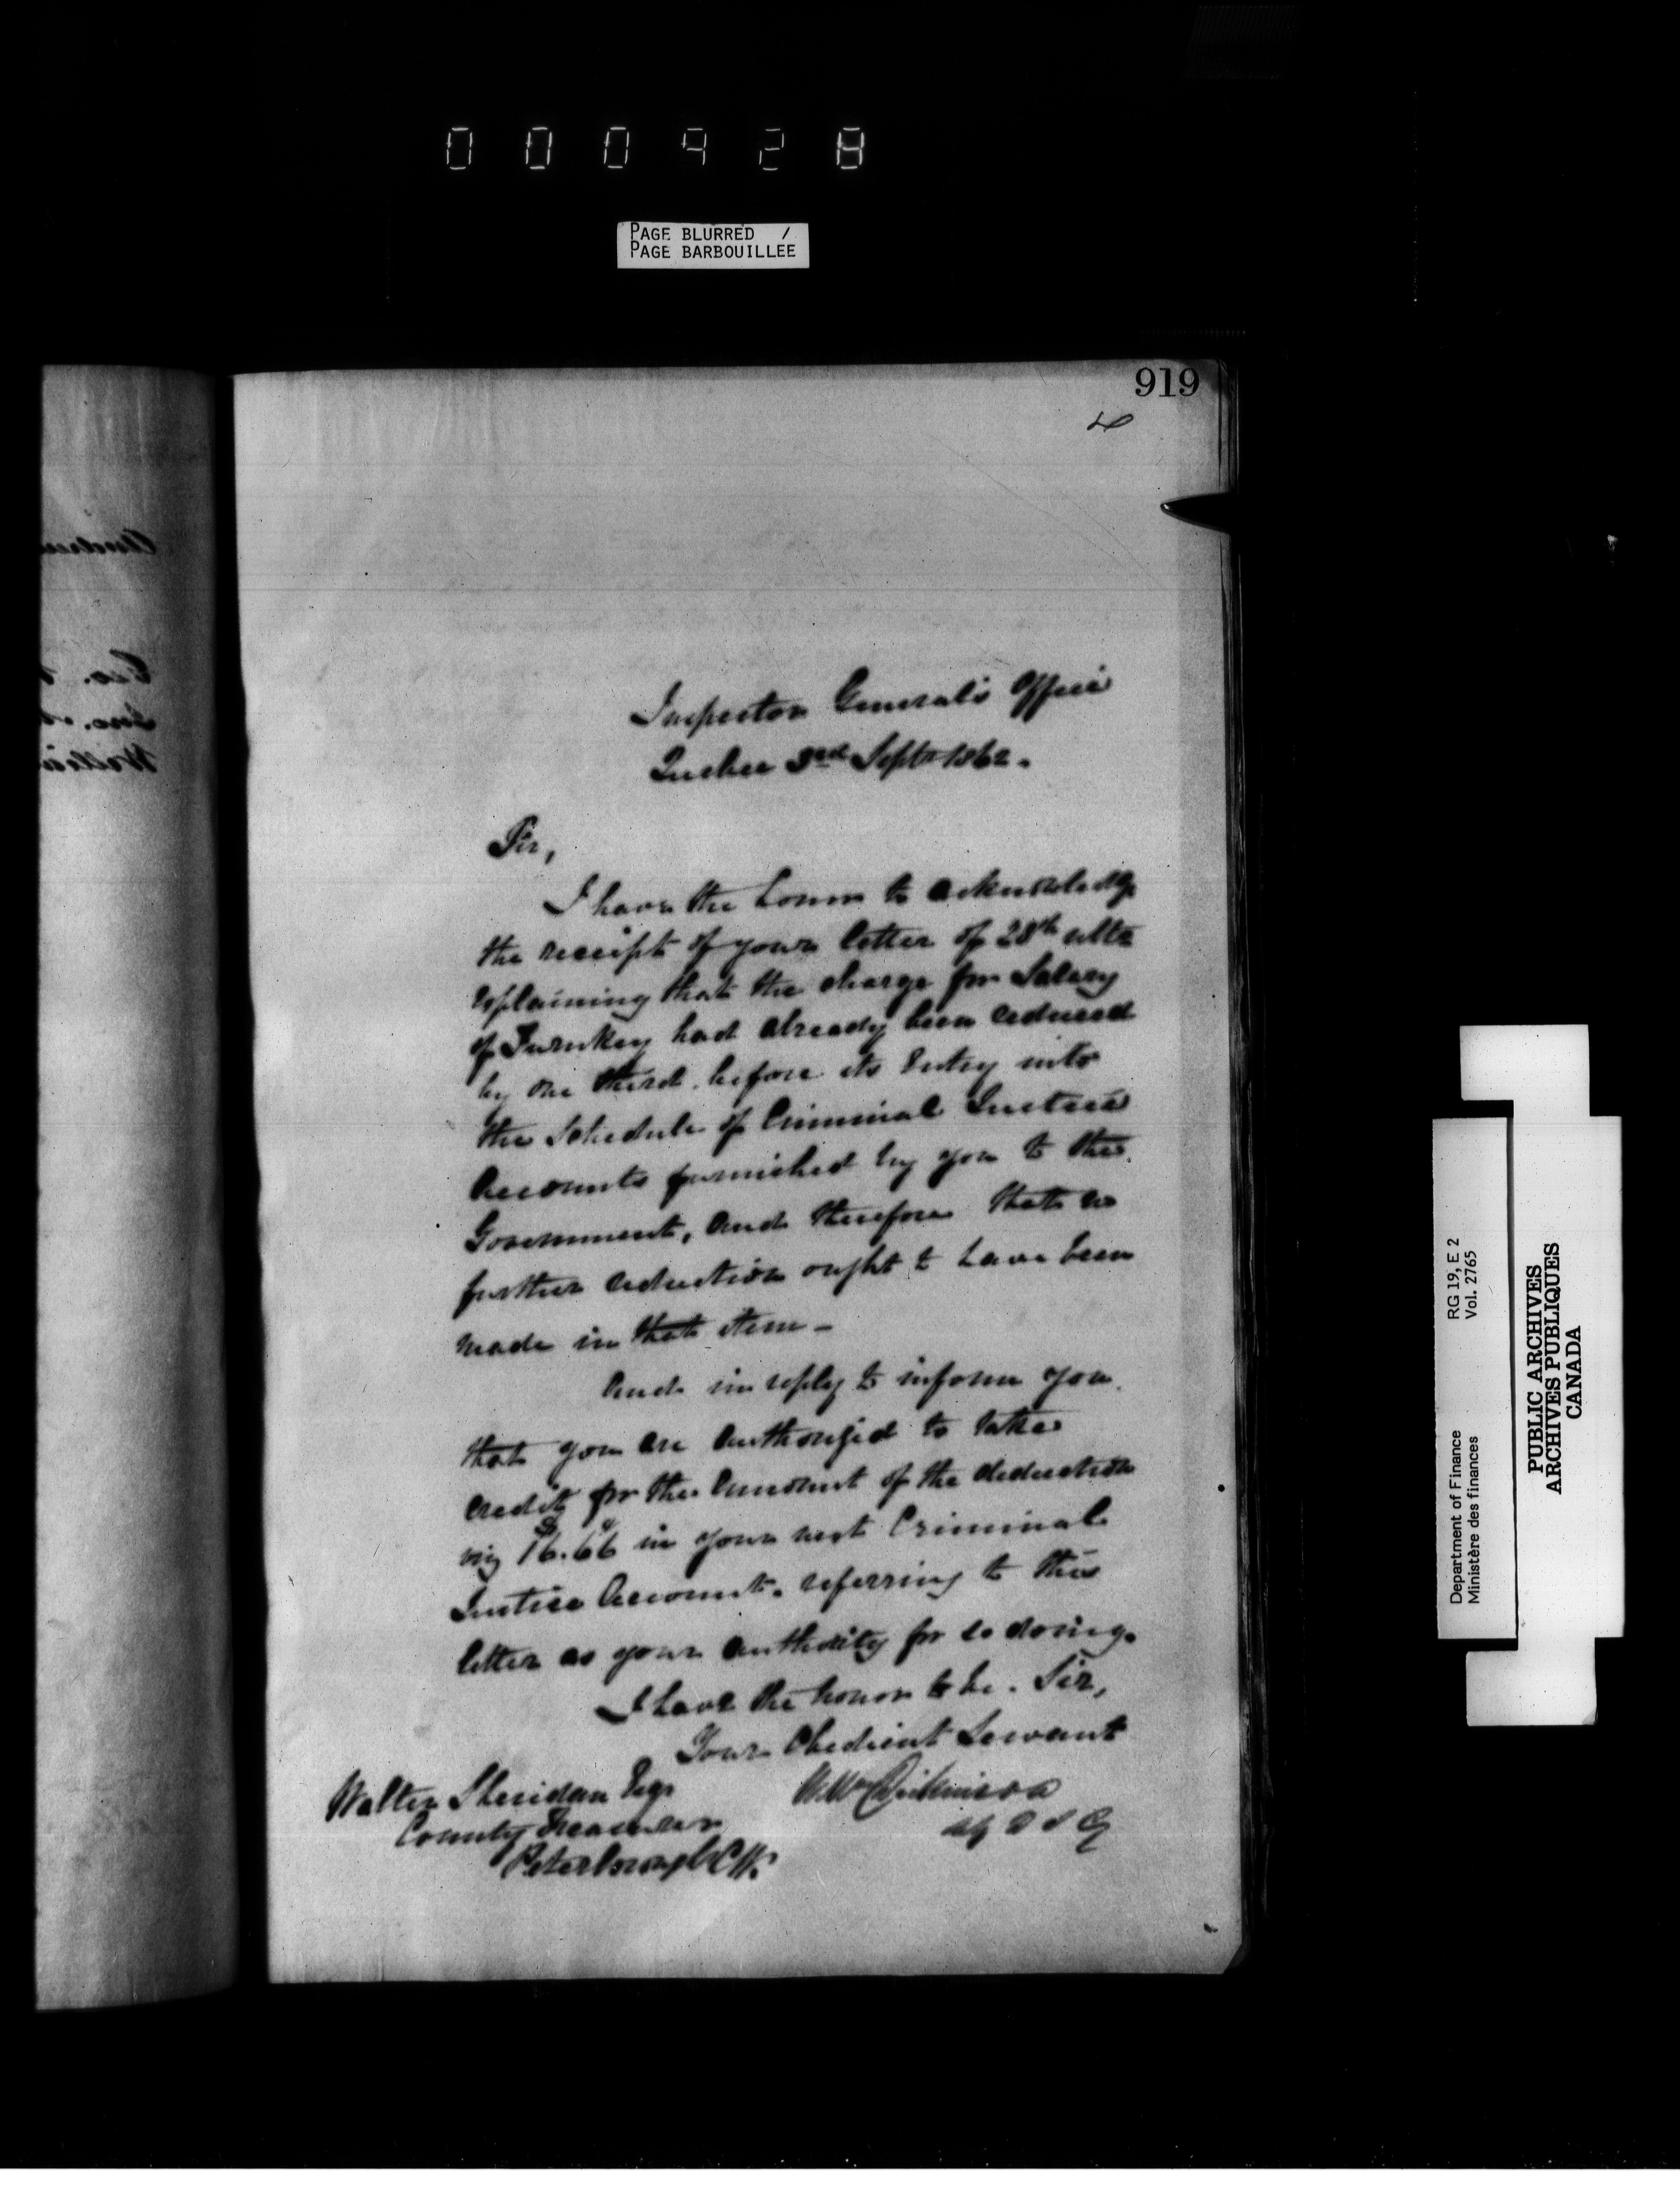 000928
PAGE BLURRED /
PAGE BARBOUILLEE
919
Inspector General's Office
Quebec 3rd Septr 1862.
Sir,
I have the honor to acknowledge
the receipt of your letter of 28th ulto
explaining that the charge for Salary
of Turnkey had already been reduced
by one third before its entry into
the Schedule of Criminal Justice
Accounts furnished by you to the
Government, and therefore that no
further reduction ought to have been
made in that item -
And in reply to inform you
that you are authorized to take
credit for the amount of the deduction
viz $16.66 in your next Criminal
Justice Account, referring to this
letter as your authority for so doing.
I have the honor to be. Sir,
Your Obedient Servant
Wm Dickinson
Walter Sheridan Esqr
County Treasurer
Peterborough C.W.
Department of Finance RG 19, E 2
Ministère des finances Vol. 2765
PUBLIC ARCHIVES
ARCHIVES PUBLIQUES
CANADA